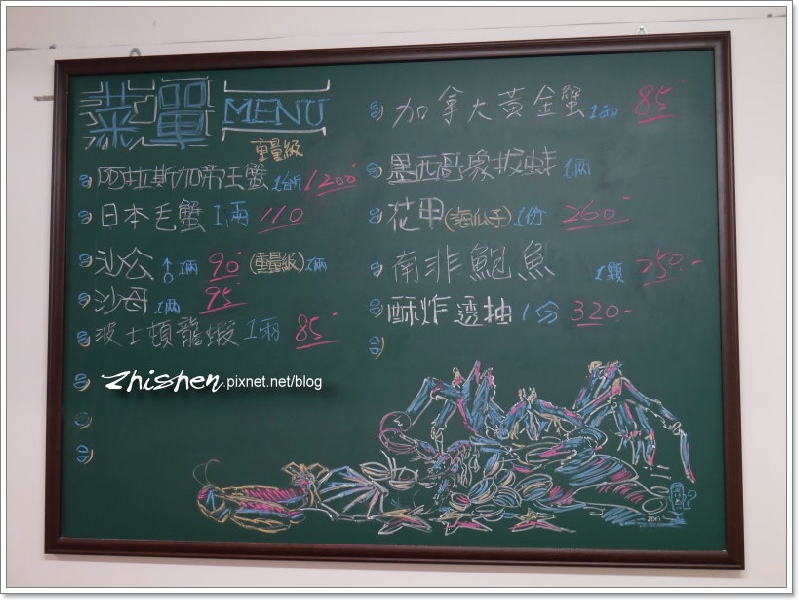 菜單 MENU
重量級
阿拉斯加帝王蟹 1台斤 1200
日本毛蟹 1兩 110
沙公 ♂ 1兩 90 (重量級) 1兩
沙母 1兩 95
波士頓龍蝦 1兩 85
zhishen.pixnet.net/blog
加拿大黃金蟹 1兩 85
墨西哥象拔蚌 1兩
花甲(海瓜子) 1份 260
南非鮑魚 1顆 250.-
酥炸透抽 1分 320-